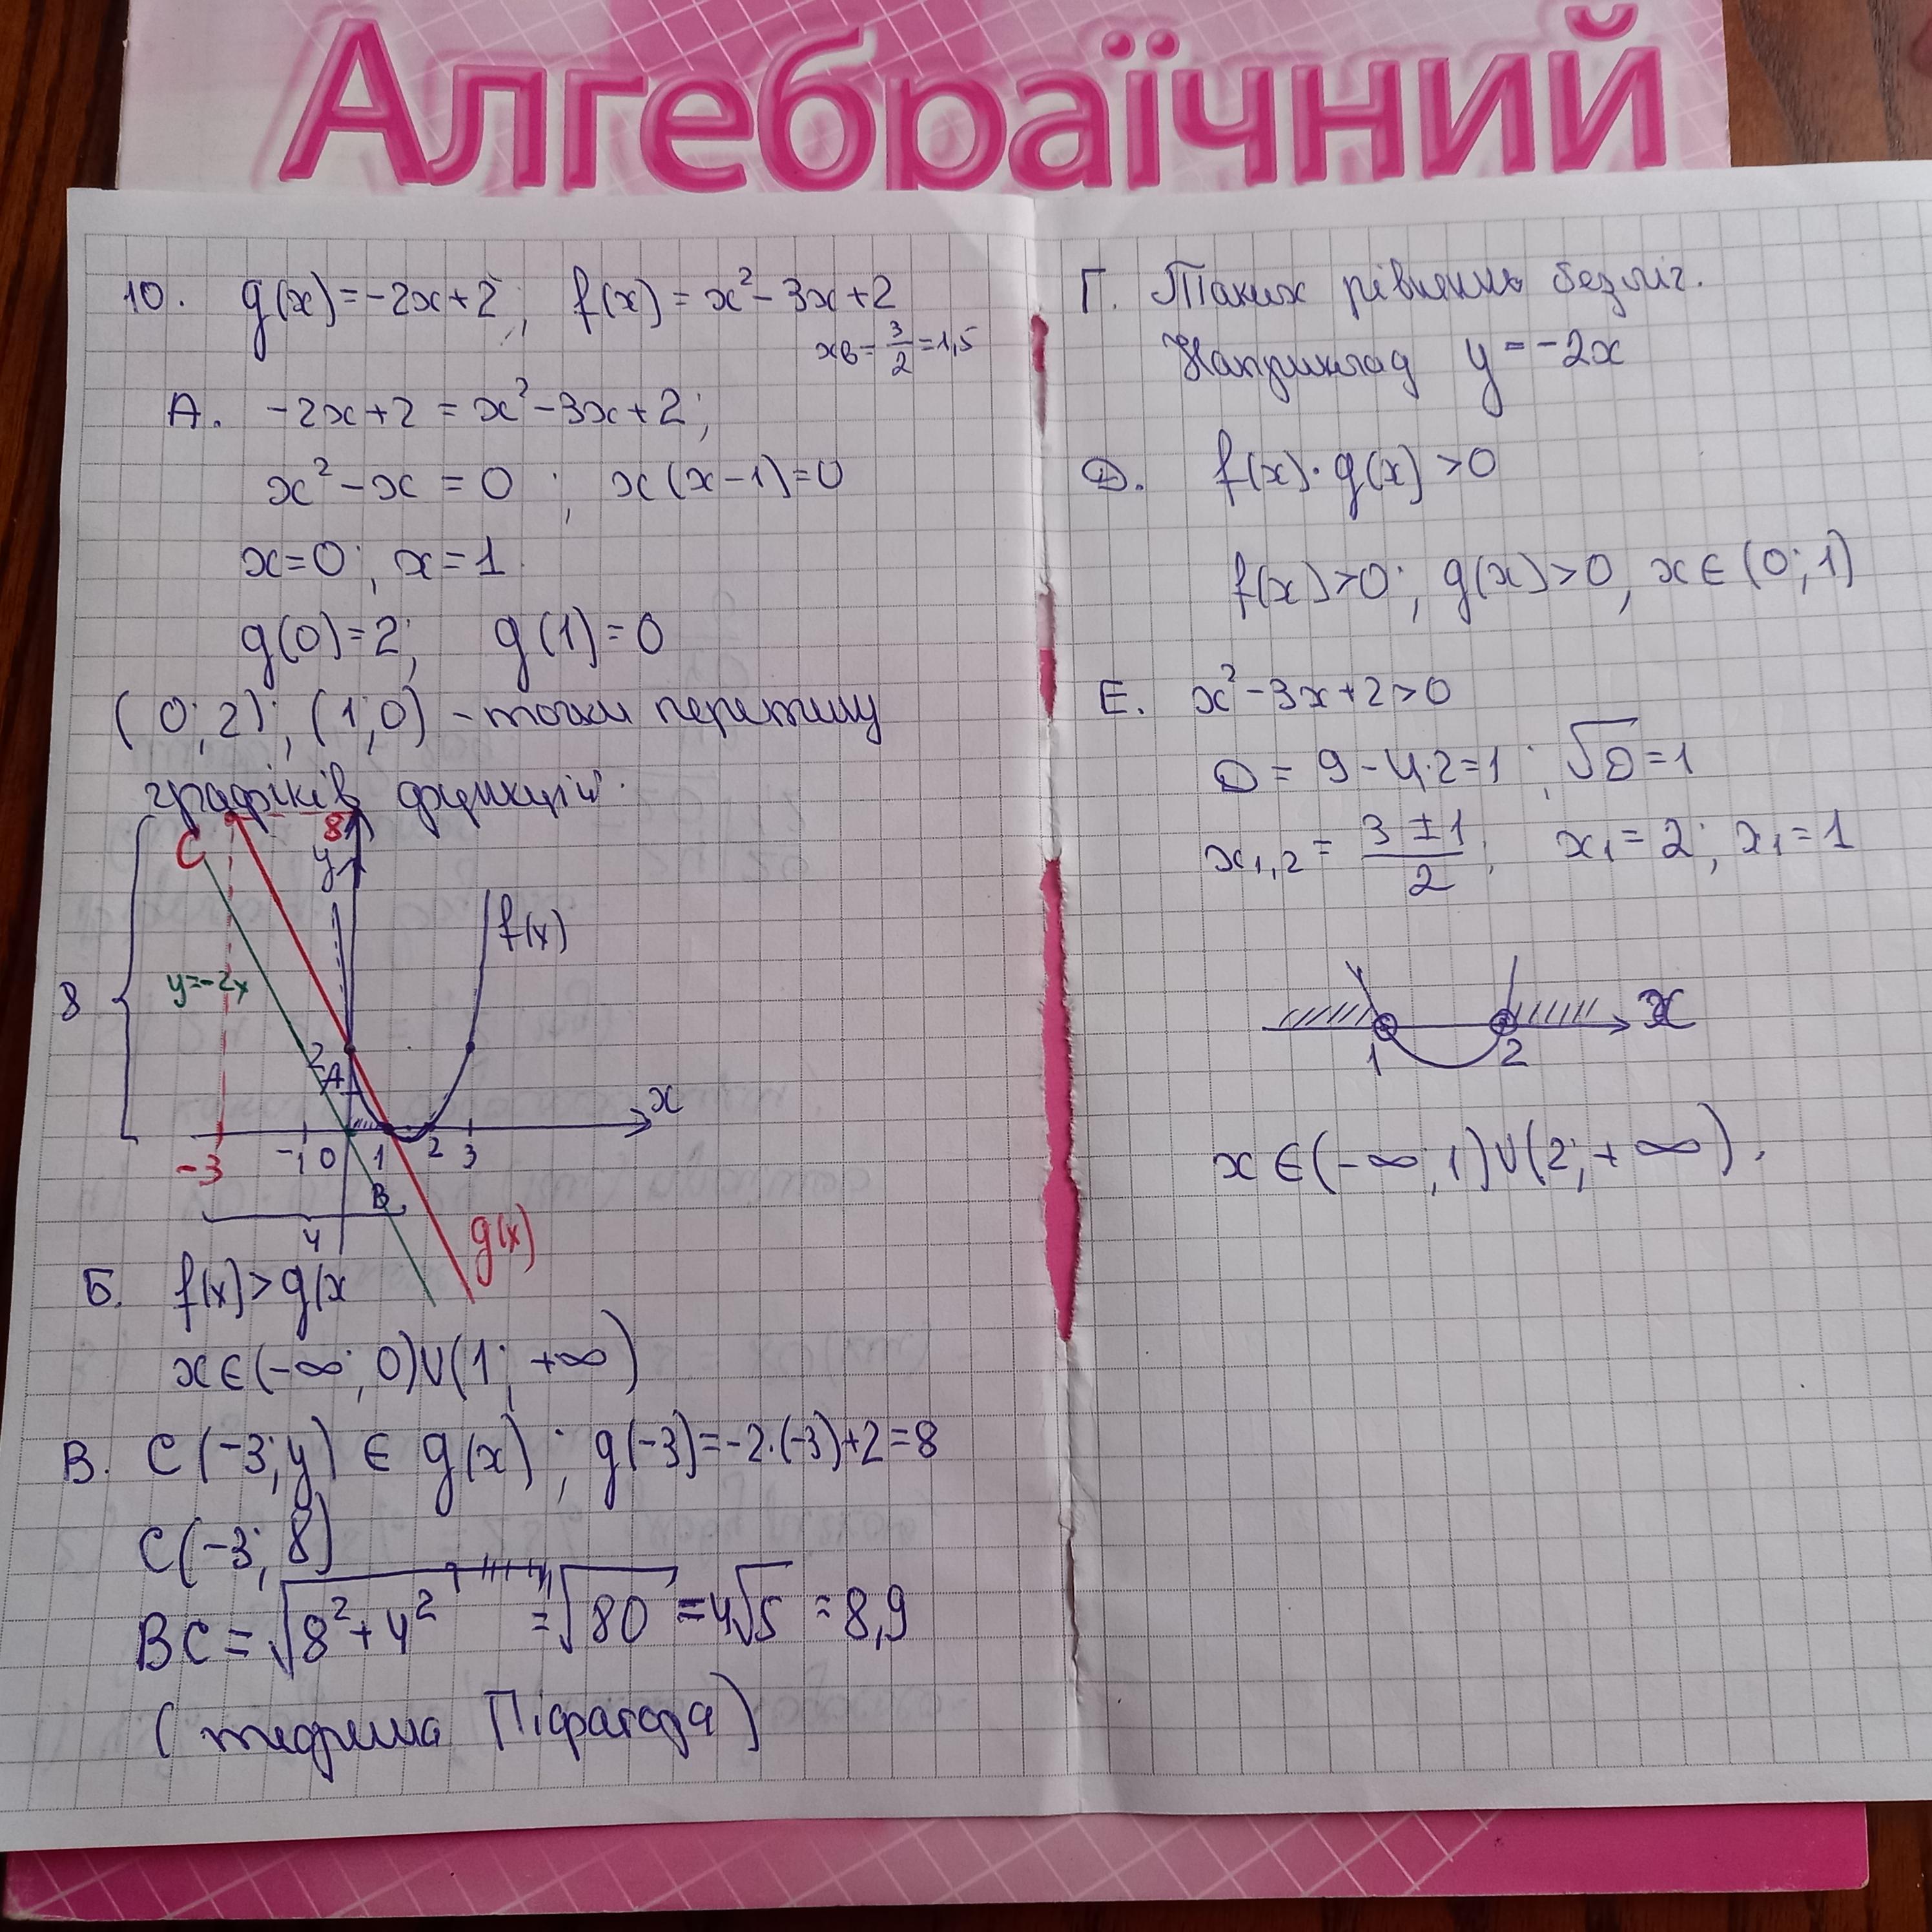 Алгебраїчний
10. g(x)=-2x+2; f(x)=x²-3x+2
xв=3/2=1,5
А. -2x+2=x²-3x+2;
x²-x=0; x(x-1)=0
x=0; x=1
g(0)=2; g(1)=0
(0;2); (1;0) - точки перетину
графіків функцій.
C 8 y
f(x)
8 y=-2x
2
A
x
-3 -1 0 1 2 3
B
4 g(x)
Б. f(x)>g(x
x∈(-∞;0)∪(1;+∞)
В. C(-3;y) ∈ g(x); g(-3)=-2·(-3)+2=8
C(-3;8)
BC=√8²+4² =√80=4√5=8,9
(теорема Піфагора)
Г. Таких рівнянь безліч.
Наприклад y=-2x
Д. f(x)·g(x)>0
f(x)>0; g(x)>0, x∈(0;1)
Е. x²-3x+2>0
D=9-4·2=1; √D=1
x₁,₂=(3±1)/2; x₁=2; x₁=1
x
1 2
x∈(-∞;1)∪(2;+∞).